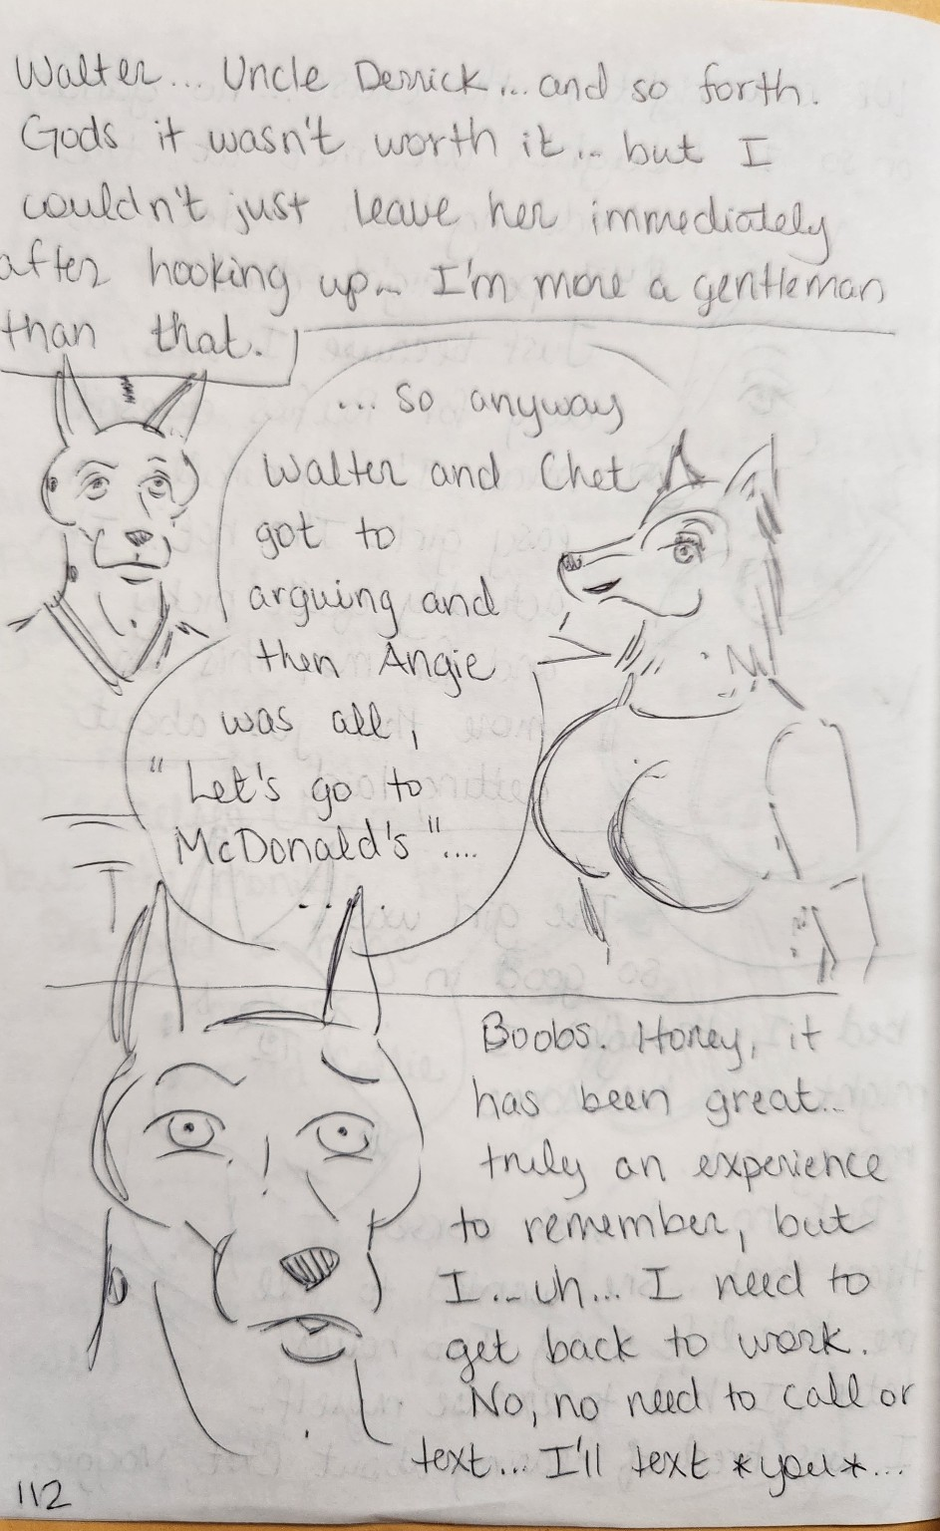 Walter... Uncle Derrick... and so forth.
Gods it wasn't worth it... but I
couldn't just leave her immediately
after hooking up... I'm more a gentleman
than that.
... so anyway
Walter and Chet
got to
arguing and
then Angie
was all,
"Let's go to
McDonald's"....
....
Boobs. Honey, it
has been great...
truly an experience
to remember, but
I... uh... I need to
get back to work.
No, no need to call or
text... I'll text *you*...
112